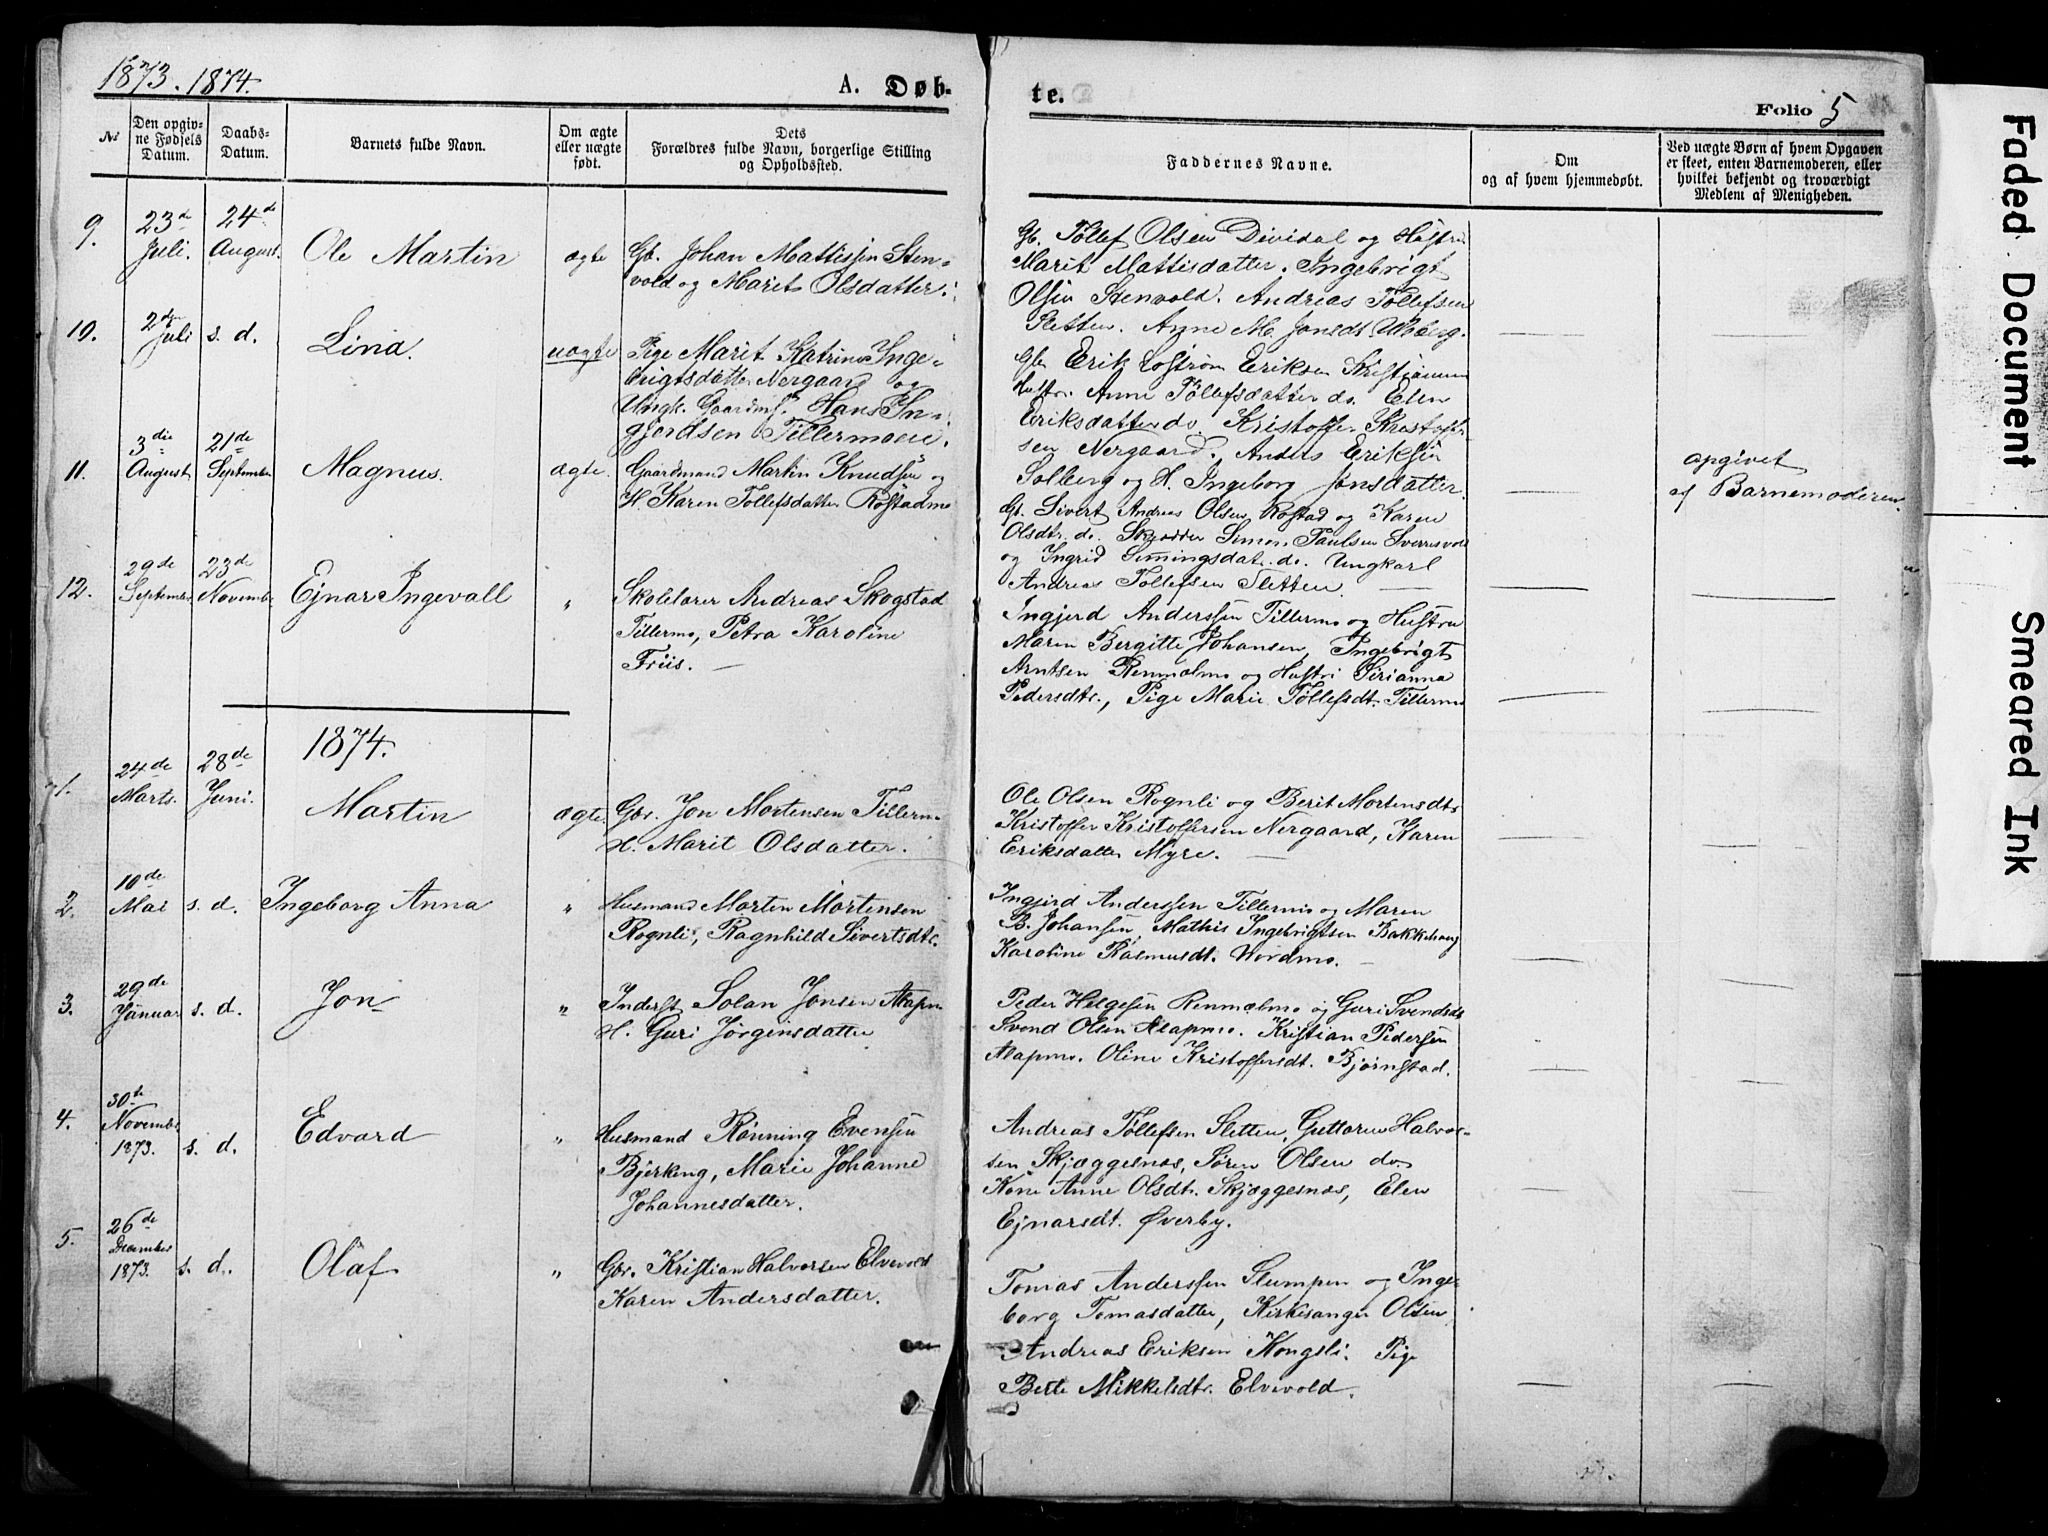 1873. 1874.
A. Døb-
te.
Folio 5
No
Den opgiv-
ne Fødsels
Datum.
Daabs-
Datum.
Barnets fulde Navn.
Om ægte
eller uægte
født.
Dets
Forældres fulde Navn, borgerlige Stilling
og Opholdssted.
Faddernes Navne.
Om
og af hvem hjemmedøbt.
Ved uægte Børn af hvem Opgaven
er skeet, enten Barnemoderen, eller
hvilket bekjendt og troværdigt
Medlem af Menigheden.
9.
23de
Juli.
24de
August.
Ole Martin
ægte
Gb. Johan Mattissen Sten-
vold og Marit Olsdatter.
Gb. Tollef Olsen Dividal og Hustru
Marit Mattisdatter. Ingebrigt
Olsen Stenvold. Andreas Tollefsen
Sletten. Anne M. Jonsdt.
10.
2den
Juli
s. d.
Lina.
uægte
Pige Marit Katrine Inge-
brigtsdatter Nergaard og
Ungk. Gaardmd. Hans In-
gjerdsen Tillermoen.
Gb. Erik Lostrøm Eriksen
Hustr. Anne Tollefsdatter do. Elen
Eriksdatter do. Kristoffer Kristoffer-
sen Nergaard. Anders Eriksen
Solberg og H. Ingeborg Jonsdatter.
opgivet
af Barnemoderen.
11.
3die
August
21de
September
Magnus.
ægte.
Gaardmand Martin Knudsen og
H. Karen Tollefsdatter Rostadmo
Gb. Sivert Andreas Olsen Rostad og Karen
Olsdtr. do. Skrædder Simon Paulsen
og Ingrid Simingsdat. do. Ungkarl
Andreas Tollefsen Sletten.
12.
29de
September
23de
November
Ejnar Ingevall
"
Skolelærer Andreas Skogstad
Tillermo, Petra Karoline
Friis.
Ingjerd Anderssen Tillermo og Hustru
Maren Bergitte Johansen, Ingebrigt
Arntsen Renmælmo og Hustru Sirianna
Pedersdtr., Pige Marie Tollefsdt. Tillermo
1874.
1.
24de
Marts.
28de
Juni.
Martin
ægte.
Gbr. Jon Mortensen Tillerm.
H. Marit Olsdatter.
Ole Olsen Rognli og Berit Mortensdtr
Kristoffer Kristoffersen Nergaard, Karen
Eriksdatter Myre.
2.
10de
Mai
s. d.
Ingeborg Anna
"
Husmand Morten Mortensen
Rognli, Ragnhild Sivertsdtr.
Ingjerd Anderssen Tillermo og Maren
B. Johansen, Mathis Ingebrigtsen Bakkehaug
Karoline Rasmusdt. Nordmo.
3.
29de
Januar
s. d.
Jon
"
Inderst Solan Jonsen Alapm
H. Guri Jørgensdatter.
Peder Helgesen Renmælmo og Guri Svendsdt
Svend Olsen Alapmo. Kristian Pedersen
Alapmo. Oline Kristoffersdt. Bjørnstad.
4.
30te
November
1873.
s. d.
Edvard
"
Husmand Rønning Evensen
Bjerkeng, Marie Johanne
Johannesdatter.
Andreas Tollefsen Sletten, Guttorm Halvor-
sen Skjæggesnæs, Søren Olsen do.
Kone Anne Olsdtr. Skjæggesnæs, Elen
Ejnarsdt. Øverby.
5.
26de
December
1873.
s. d.
Olaf
"
Gbr. Kristian Halvorsen Elvevold
Karen Andersdatter.
Tomas Anderssen Slumpen og Inge-
borg Tomasdatter, Kirkesanger Olsen
Andreas Eriksen Kongsli. Pige
Berte Mikkelsdtr. Elvevold.
Faded Document
Smeared Ink